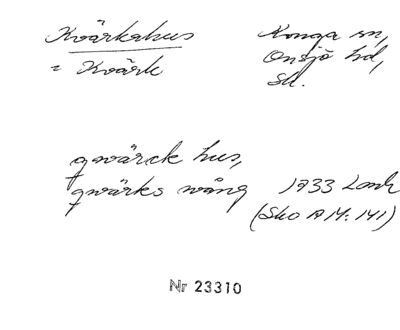 Kvärkahus Konga sn,
= Kvärk Onsjö hd,
Sk.
qwärck hus,
qwärks wång 1733 Lonh
(Sko A 14: 141)
Nr 23310